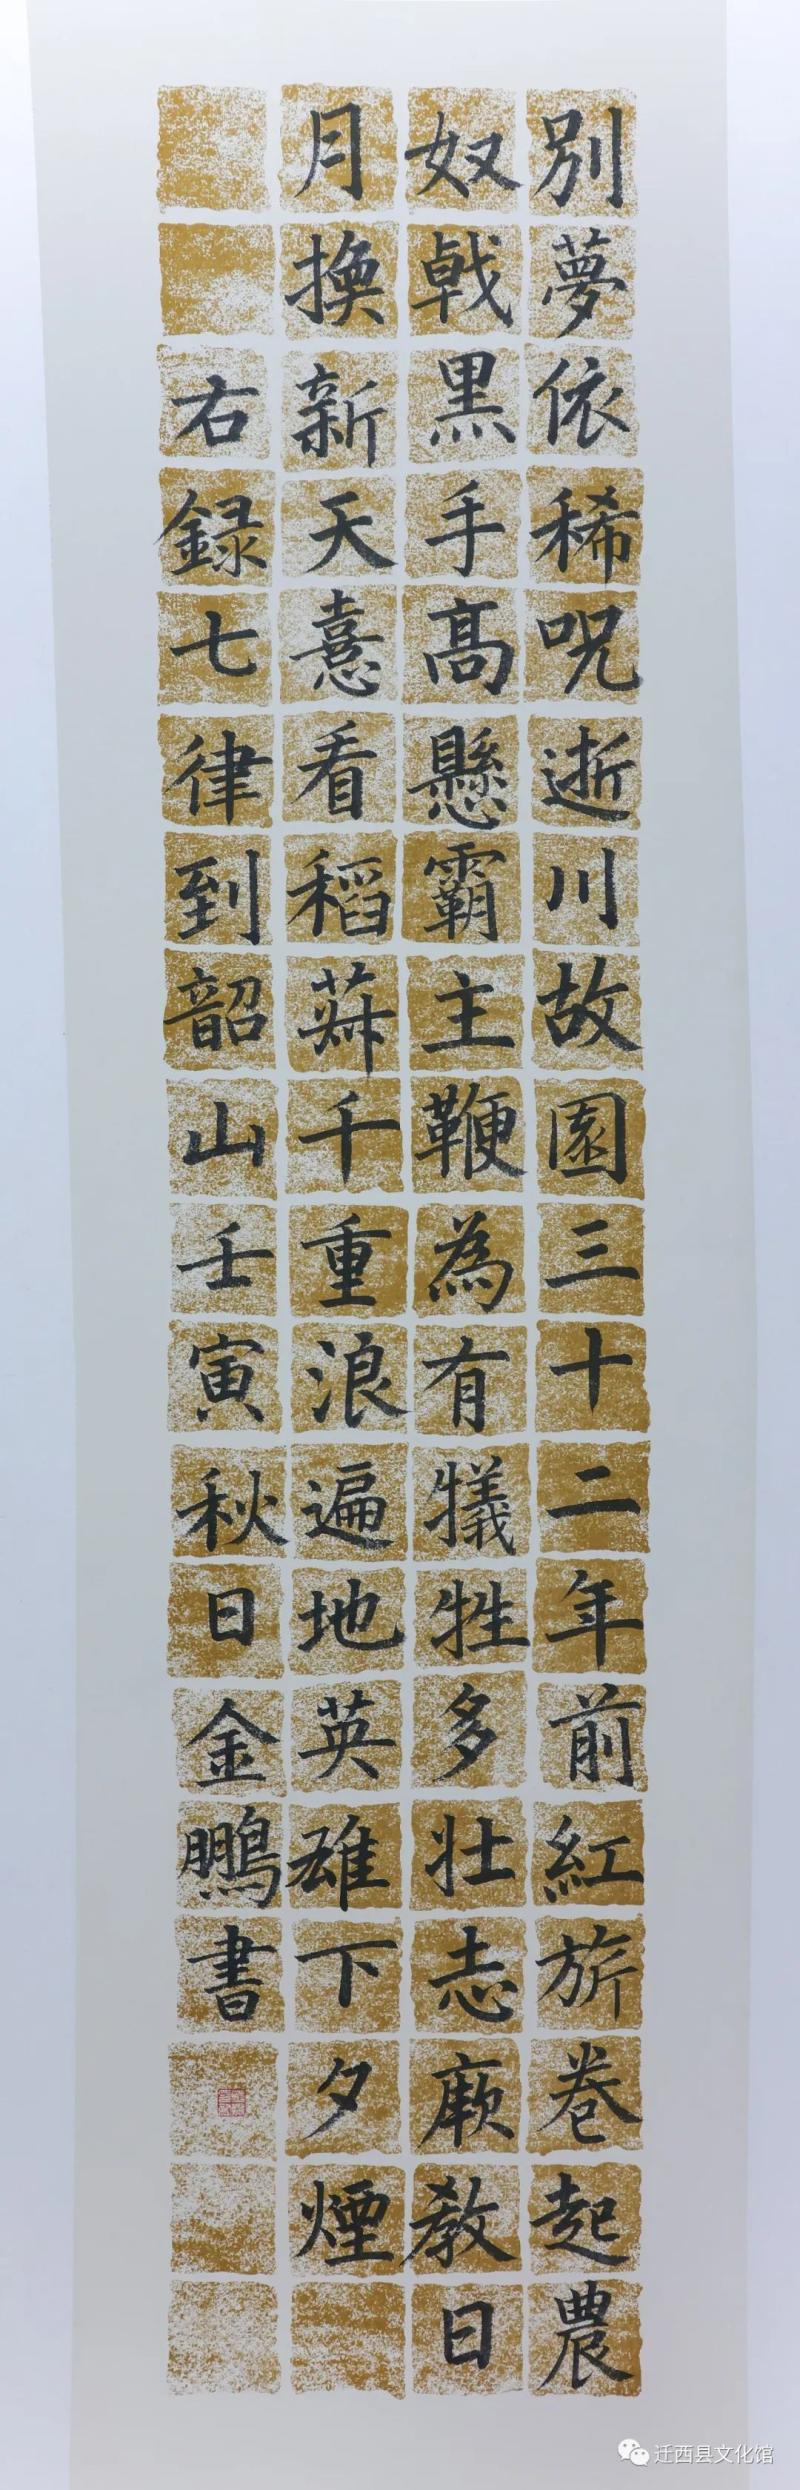 別夢依稀呪逝川故園三十二年前紅旂卷起農
奴戟黒手髙懸霸主鞭為有犧牲多壯志厰教日
月換新天憙看稻菻千重浪遍地英雄下夕煙
右録七律到韶山壬寅秋日金鵬書
迁西县文化馆